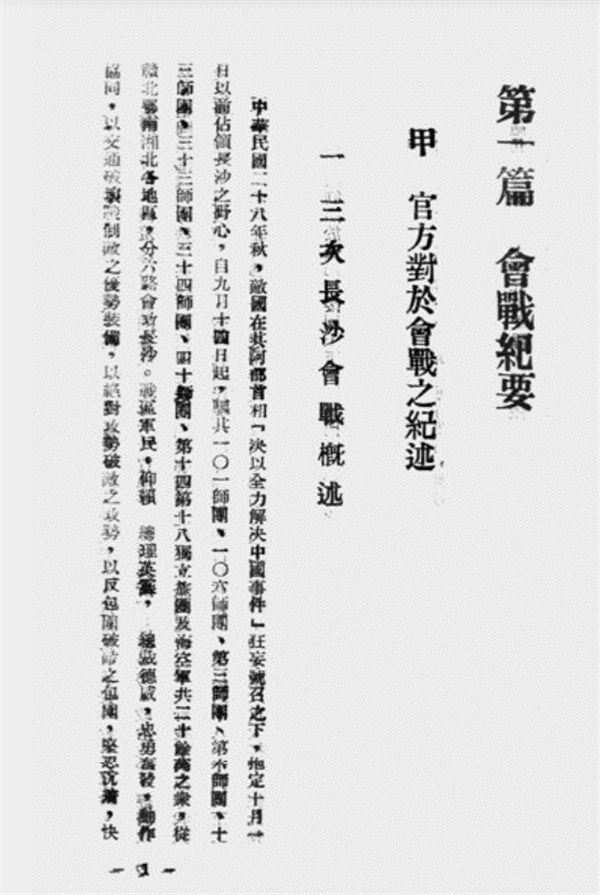 第一篇　會戰紀要
甲　官方對於會戰之紀述
一　三次長沙會戰槪述
中華民國二十八年秋，敵國在其阿部首相「決以全力解決中國事件」狂妄號召之下，抱定十月一
日以前佔領長沙之野心，自九月十四日起，驅其一〇一師團、一〇六師團、第三師團、第六師團、十
三師團、三十三師團、三十四師團、四十師團、第十四第十八獨立旅團及海空軍共二十餘萬之衆，從
贛北鄂南湘北各地區，分六路會攻長沙。戰區軍民，仰賴　總理英靈，總裁德威，忠勇奮發，動作
協同，以交通破壞制敵之優勢裝備，以絕對攻勢破敵之攻勢，以反包圍破敵之包圍，堅忍沉着，快
— 1 —